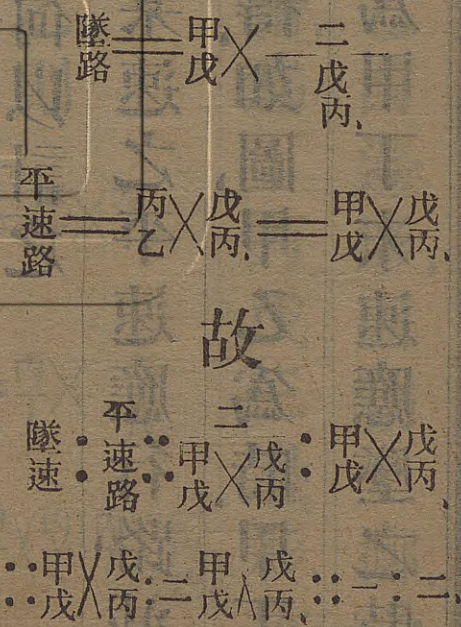 墜路══甲戊×二戊丙、
平速路══丙乙×戊丙、══甲戊×戊丙、
故
墜速:平速路::二甲戊×戊丙:甲戊×戊丙、
::甲戊×戊丙:二甲戊×戊丙、::一:二、